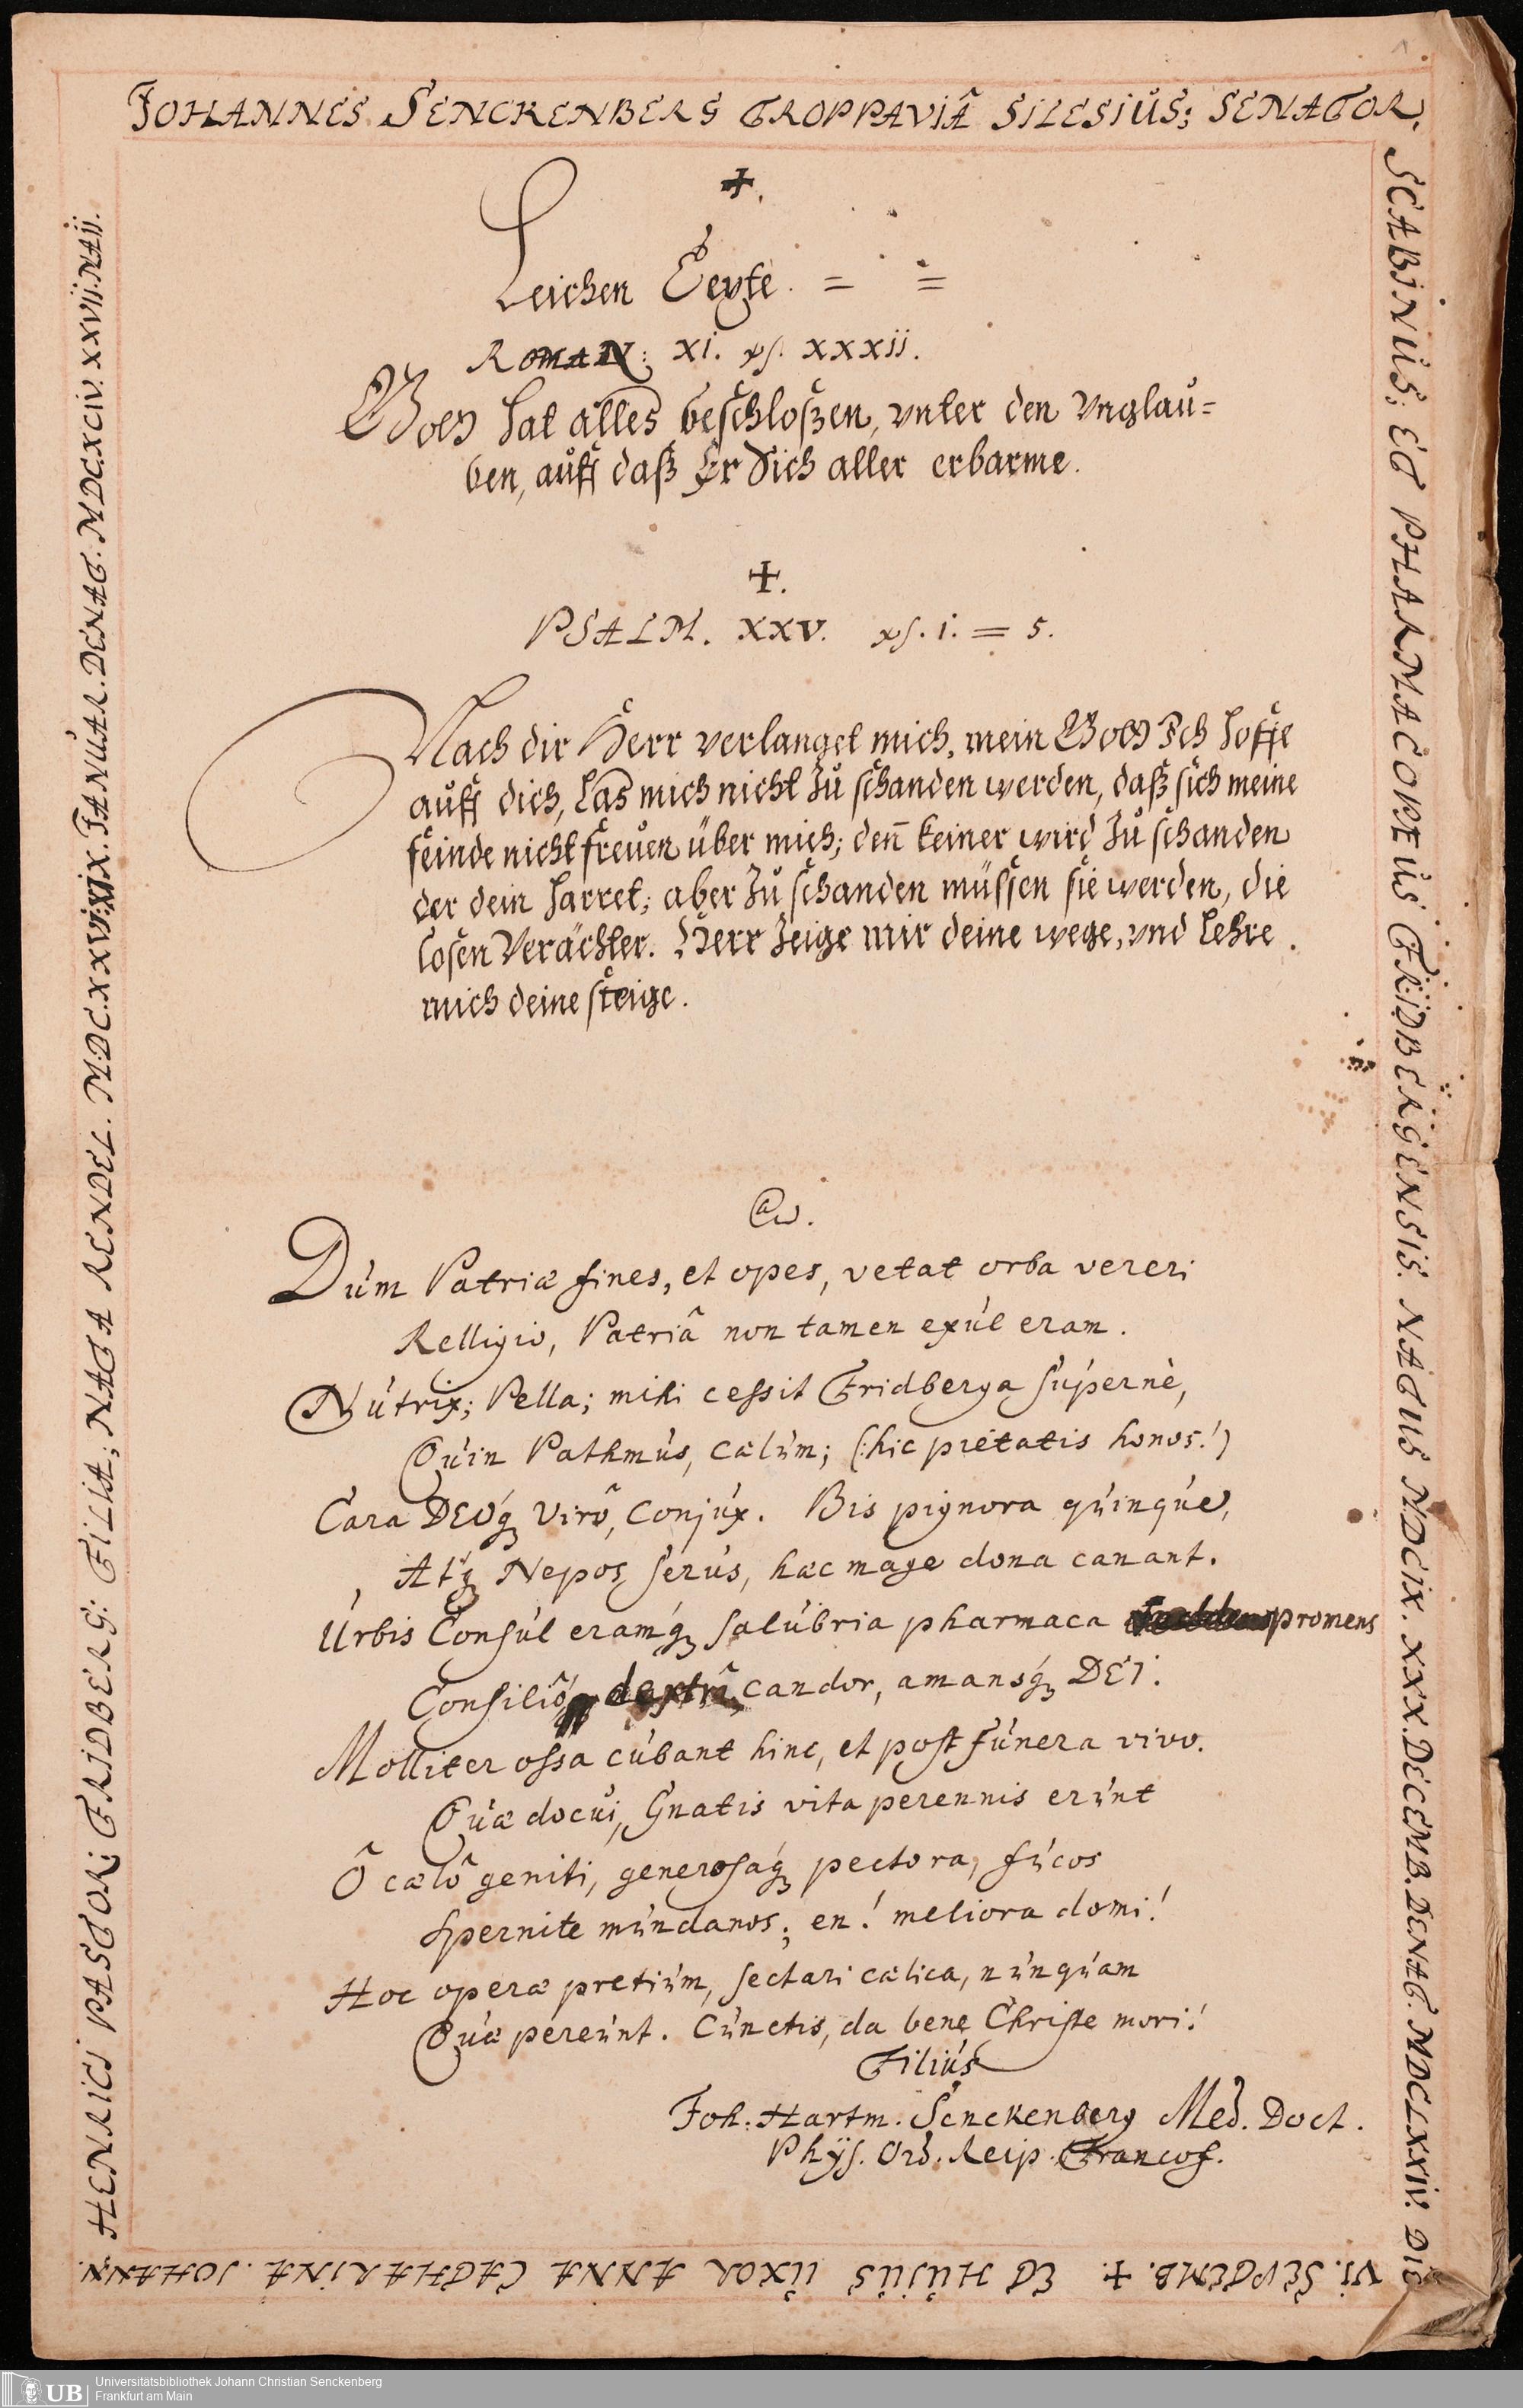 JOHANNES SENCKENBERG TROPPAVIÂ SILESIUS; SENATOR,
SCABINUS; ET PHARMACOPEUS FRIDBERGENSIS. NATUS MDCIX. XXX. DECEMB. DENAT. MDCLXXIV. DIE
VI. SEPTEMB. +. ET HUJUS UXOR ANNA CATHARINA. JOHANN.
HENRICI PASTOR; FRIDBERG: FILIA; NATA RENDEL. MDC.XXVI. XIX. JANUAR. DENAT. MDC.XCIV. XXVII. MAII.
+.
Leichen Texte. = =
ROMAN: XI. vs. XXXII.
Gott hat alles beschloßen, vnter den Vnglau=
ben, auff daß Er Sich aller erbarme.
+.
PSALM. XXV. vs. 1. = 5.
Nach dir Herr verlanget mich, mein Gott Ich hoffe
auff dich, Las mich nicht zu schanden werden, daß sich meine
feinde nicht freuen über mich; deñ keiner wird zu schanden
der dein harret; aber zu schanden müssen sie werden, die
losen Verächter. Herr zeige mir deine wege, vnd lehre
mich deine steige.
Dum Patriæ fines, et opes, vetat orba vereri
Relligio, Patriâ non tamen exul eram.
Nutrix; Pella; mihi cessit Fridberga supernè,
Quin Pathmus, cælum; (: hic pietatis honos!)
Cara DEOq; Virô, Conjux. Bis pignora quinque,
Atq; Nepos serus, hæc mage dona canant.
Urbis Consul eramq; salubria pharmaca promens
Consiliô, dextrâ, candor, amansq; DEI.
Molliter ossa cubant hinc, et post funera vivo.
Quæ docui, Gnatis vita perennis erunt
Ô cælô geniti, generosaq; pectora, fucos
Spernite mundanos; en! meliora domi!
Hoc operæ pretium, sectari cælica, nunquam
Quæ pereunt. Cunctis, da bene Christe mori!
Filius
Joh. Hartm. Senckenberg Med. Doct.
Phys. Ord. Reip. Francof.
UB
Universitätsbibliothek Johann Christian Senckenberg
Frankfurt am Main